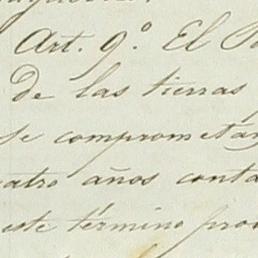 Art. 9.º El
de las tierras
se comprometan
cuatro años conta
este término